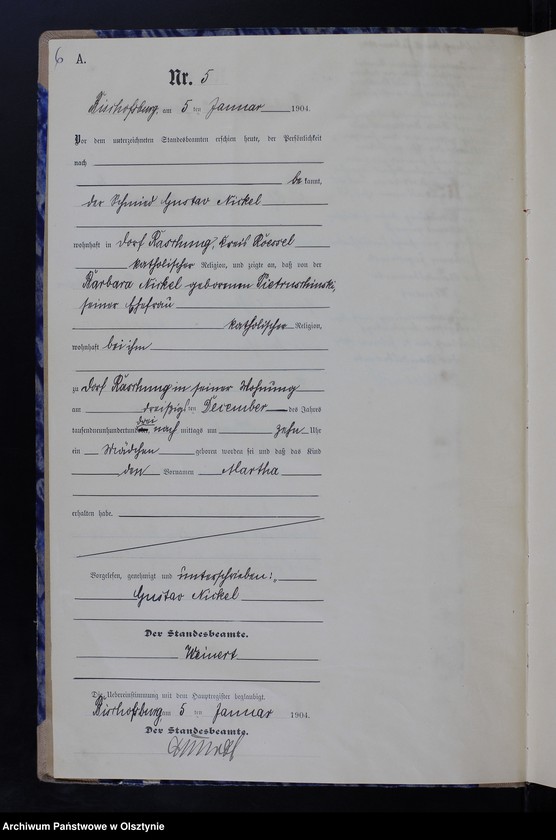 6
A.
Nr. 5
Bischofsburg, am 5 ten Januar 1904.
Vor dem unterzeichneten Standesbeamten erschien heute, der Persönlichkeit
nach
be kannt,
der Schmied Gustav Nickel
wohnhaft in Dorf Raschung, Kreis Roessel
katholischer Religion, und zeigte an, daß von der
Barbara Nickel geborenen
seiner Ehefrau
katholischer Religion,
wohnhaft bei ihm
zu Dorf Raschung in seiner Wohnung
am dreißigsten December des Jahres
tausendneunhundert drei
nach mittags um zehn Uhr
ein Mädchen geboren worden sei und daß das Kind
den Vornamen Martha
erhalten habe.
Vorgelesen, genehmigt und unterschrieben:
Gustav Nickel
Der Standesbeamte.
Weinert
Die Uebereinstimmung mit dem Hauptregister beglaubigt.
Bischofsburg am 5 ten Januar 1904.
Der Standesbeamte.
Archiwum Państwowe w Olsztynie